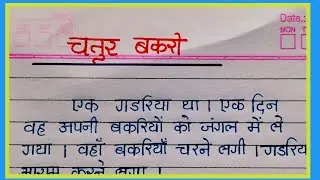 Date.:
MON
चतुर बकरी
एक गडरिया था । एक दिन
वह अपनी बकरियों को जंगल में ले
गया । वहाँ बकरियाँ चरने लगी । गडरिय
आराम करने लगा ।